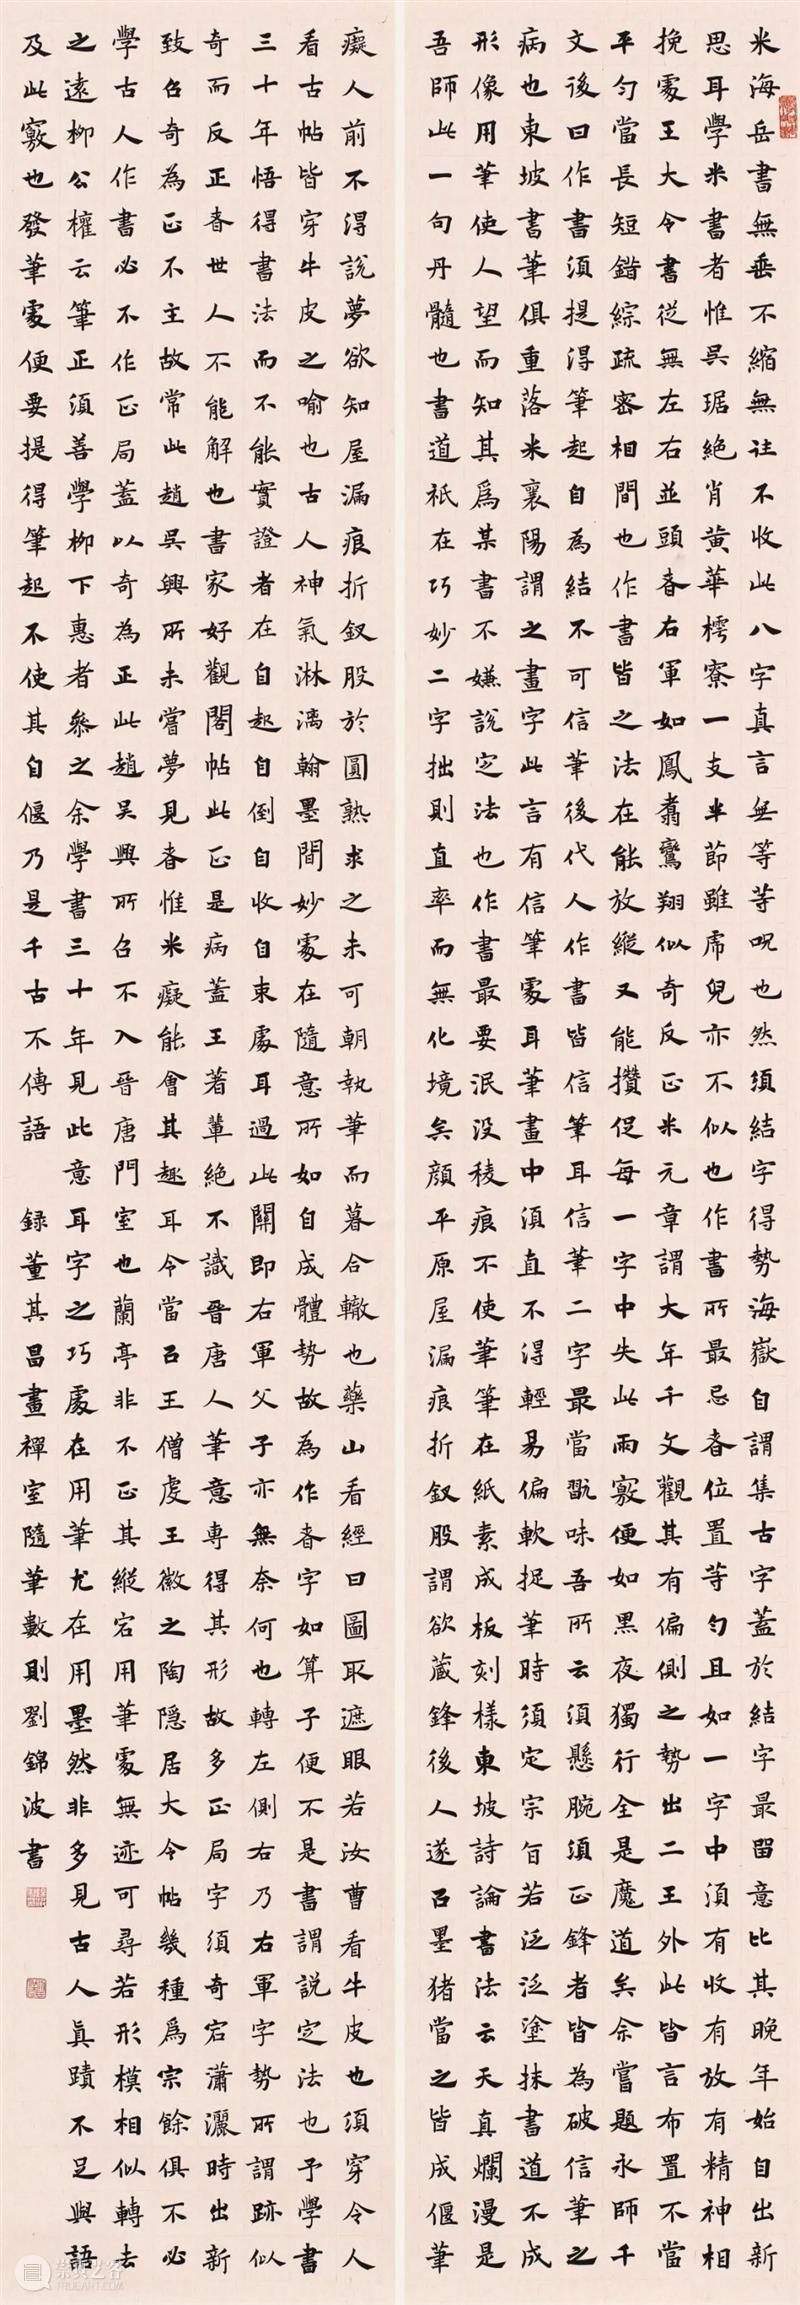 米海岳書無垂不縮無往不收此八字真言無等等呪也然須結字得勢海嶽自謂集古字蓋於結字最留意比其晚年始自出新
思耳學米書者惟吳琚絕肖黃華樗寮一支半節雖虎兒亦不似也作書所最忌者位置等勻且如一字中須有收有放有精神相
挽處王大令書從無左右並頭者右軍如鳳翥鸞翔似奇反正米元章謂大年千文觀其有偏側之勢出二王外此皆言布置不當
平勻當長短錯綜疏密相間也作書皆之法在能放縱又能攢促每一字中失此兩竅便如黑夜獨行全是魔道矣余嘗題永師千
文後曰作書須提得筆起自為結不可信筆後代人作書皆信筆耳信筆二字最當翫味吾所云須懸腕須正鋒者皆為破信筆之
病也東坡書筆俱重落米襄陽謂之畫字此言有信筆處耳筆畫中須直不得輕易偏軟捉筆時須定宗旨若泛泛塗抹書道不成
形像用筆使人望而知其為某書不嫌說定法也作書最要泯沒稜痕不使筆筆在紙素成板刻樣東坡詩論書法云天真爛漫是
吾師此一句丹髓也書道祇在巧妙二字拙則直率而無化境矣顏平原屋漏痕折釵股謂欲藏鋒後人遂以墨猪當之皆成偃筆
癡人前不得說夢欲知屋漏痕折釵股於圓熟求之未可朝執筆而暮合轍也藥山看經曰圖取遮眼若汝曹看牛皮也須穿今人
看古帖皆穿牛皮之喻也古人神氣淋漓翰墨間妙處在隨意所如自成體勢故為作者字如算子便不是書謂說定法也予學書
三十年悟得書法而不能實證者在自起自倒自收自束處耳過此關即右軍父子亦無奈何也轉左側右乃右軍字勢所謂跡似
奇而反正者世人不能解也書家好觀閣帖此正是病蓋王著輩絕不識晉唐人筆意專得其形故多正局字須奇宕瀟灑時出新
致以奇為正不主故常此趙吳興所未嘗夢見者惟米癡能會其趣耳今當以王僧虔王徽之陶隱居大令帖幾種為宗餘俱不必
學古人作書必不作正局蓋以奇為正此趙吳興所以不入晉唐門室也蘭亭非不正其縱宕用筆處無迹可尋若形模相似轉去
之遠柳公權云筆正須善學柳下惠者參之余學書三十年見此意耳字之巧處在用筆尤在用墨然非多見古人真蹟不足與語
及此竅也發筆處便要提得筆起不使其自偃乃是千古不傳語 録董其昌畫禪室隨筆數則劉錦波書
崇真艺客
TRUEART.COM